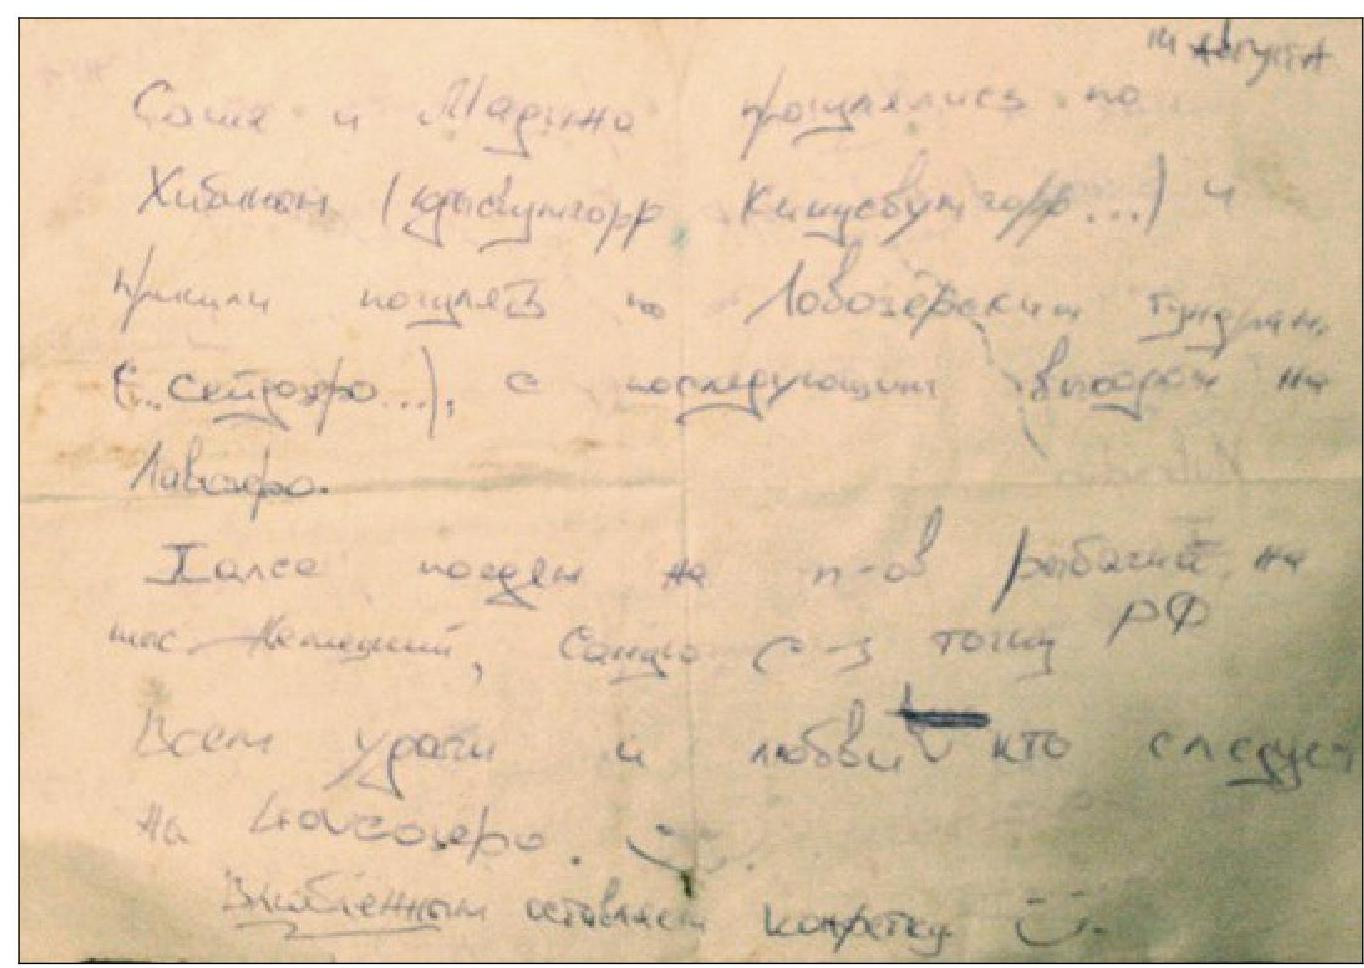 14 августа
Саша и Марина прогулялись по
Хибинам (Юдычвумчорр, Кицусвумчорр...) и
пришли погулять по Ловозёрским тундрам,
(..Сейдозеро...), с последующим выходом на
Ловозеро.
Далее поедем на п-ов Рыбачий, на
мыс Немецкий, самую с-з точку РФ
Всем удачи и любви кто следует
на
Влюбленным оставляем конфетку